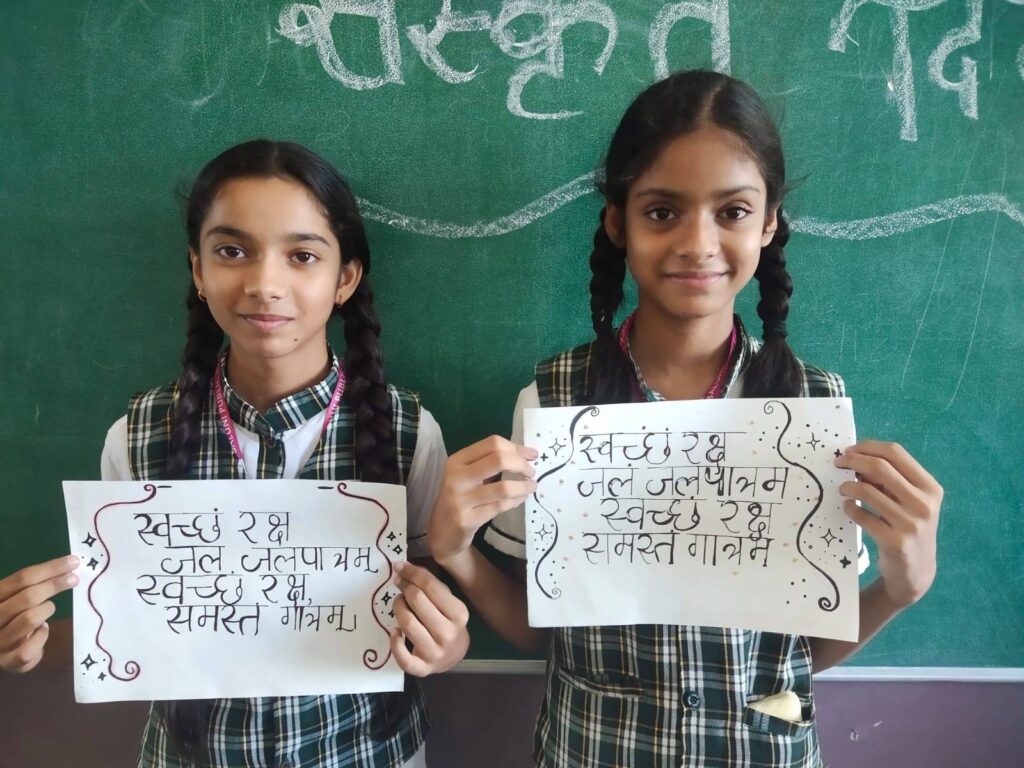 संस्कृत दि
स्वच्छं रक्ष
जलं जलपात्रम्
स्वच्छं रक्ष
समस्तं गात्रम्।
स्वच्छं रक्ष
जलं जलपात्रम
स्वच्छं रक्ष
समस्तं गात्रम